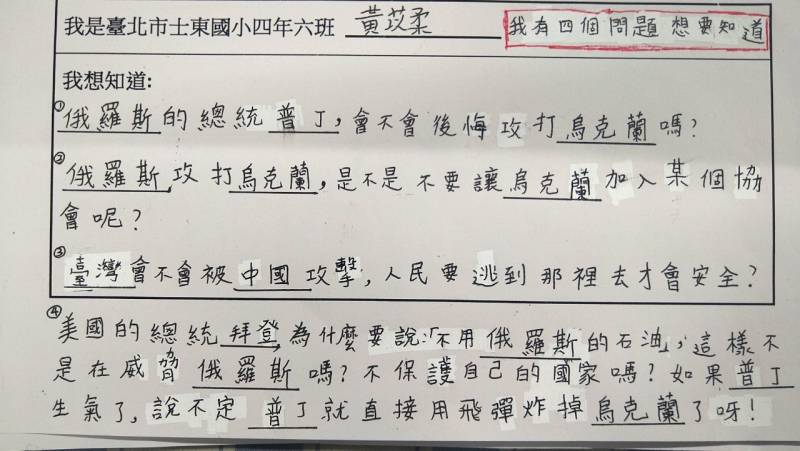 我是臺北市士東國小四年六班 黃苡柔 我有四個問題想要知道
我想知道:
①俄羅斯的總統普丁,會不會後悔攻打烏克蘭嗎?
②俄羅斯攻打烏克蘭,是不是不要讓烏克蘭加入某個協
會呢?
③臺灣會不會被中國攻擊,人民要逃到那裡去才會安全?
④美國的總統拜登,為什麼要說:「不用俄羅斯的石油」,這樣不
是在威脅俄羅斯嗎?不保護自己的國家嗎?如果普丁
生氣了,說不定普丁就直接用飛彈炸掉烏克蘭了呀!